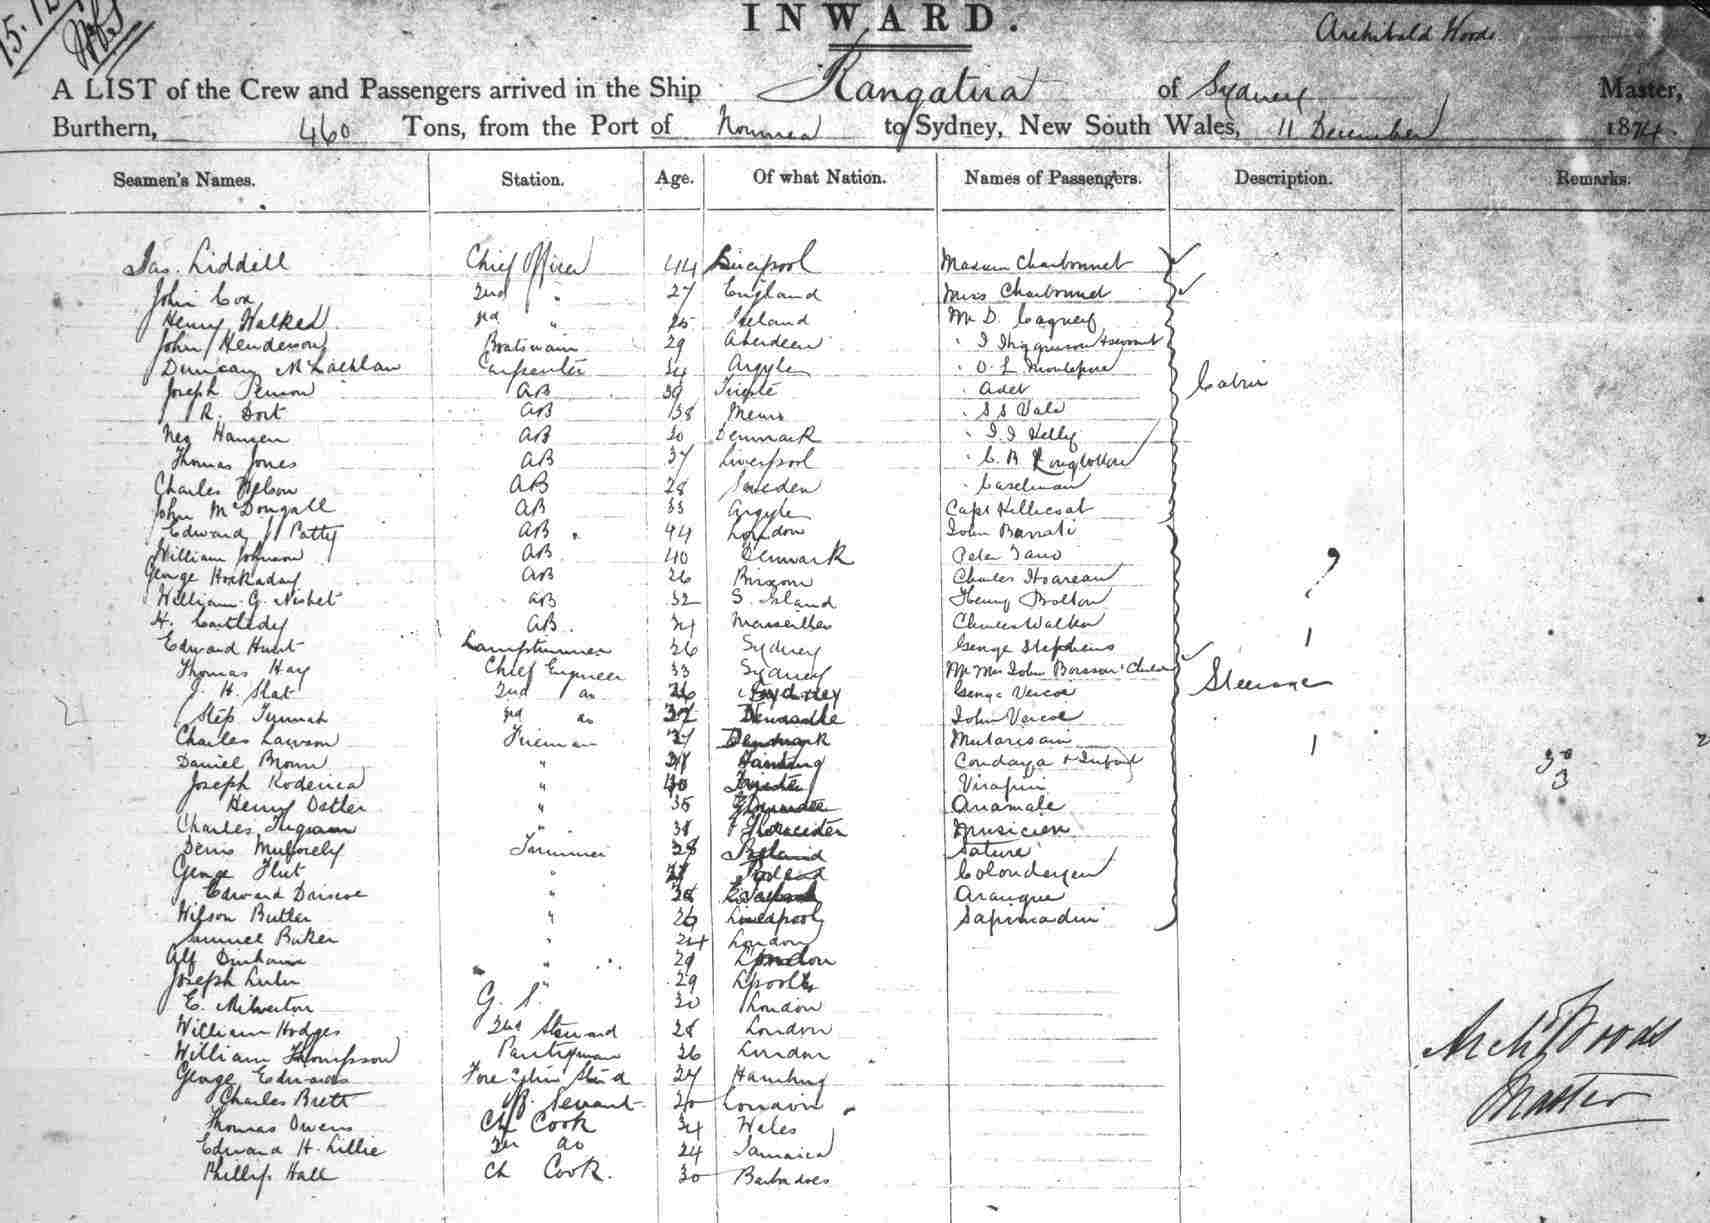 INWARD.
Archibald Woods
A LIST of the Crew and Passengers arrived in the Ship Rangatira of Sydney Master,
Burthern, 460 Tons, from the Port of Noumea to Sydney, New South Wales, 11 December 1874.
Seamen's Names. Station. Age. Of what Nation. Names of Passengers. Description. Remarks.
Jas. Liddell Chief Officer 44 Liverpool Madam Charbonnet
John Cox 2nd " 27 England Miss Charbonnet
Henry Walked 3rd " 25 Ireland Mr D. Cagney
John Henderson Boatswain 29 Aberdeen " J Higginson & servant
Duncan McLachlan Carpenter 34 Argyle " O. L.
Joseph AB 39 " Adet Cabin
R. Dort AB 38 " S S Vale
Hansen AB 30 Denmark " J. J Kelly
Thomas Jones AB 37 Liverpool " C. B Longbottom
Charles Nelson AB 28 Sweden " Caselman
John McDougall AB 33 Argyle Capt Kellicoat
Edward J Patty AB 44 London John Barrati
William Johnson AB 40 Denmark Peter
George Hockaday AB 26 Charles Hoareau
William G. Nisbet AB 32 S. Island Henry Bolton
H. AB. 34 Marseilles Charles Walker
Edward Hunt Lamptrimmer 26 Sydney George Stephens
Thomas Hay Chief Engineer 33 Sydney Mr Mrs John
J. H. Slat 2nd do 26 Sydney George Vercoe Steerage
3rd do 32 Newcastle John Vercoe
Charles Lawson Fireman 37 Denmark Mutaresain
Daniel Brown " Condaya & Infant 30
Joseph Roderica " Trieste Virapin 3
Henry Ostler " 35 Anamale
Charles Ingram " 38 Gloucester Musicien
Denis Trimmer 28 Ireland Sature
George Flut " Colondayen
Edward " Arangue
Wilson Butler " 26 Liverpool Sapimadin
Samuel Baker " 24 London
Alf Dunham " 29 London
Joseph " 29 Lpool
E. Milverton G. S. 30 London
William Hodges 2nd Steward 28 London
William Thompson Pantryman 26 London
George Edwards Fore Cabin Std 27 Hamburg
Charles Brett Servant 20 London
Thomas Owens Ch Cook 34 Wales
Edward H. Lillie 2nd do 24 Jamaica
Phillip Hall Ch Cook. 30 Barbadoes
Archd Woods
Master